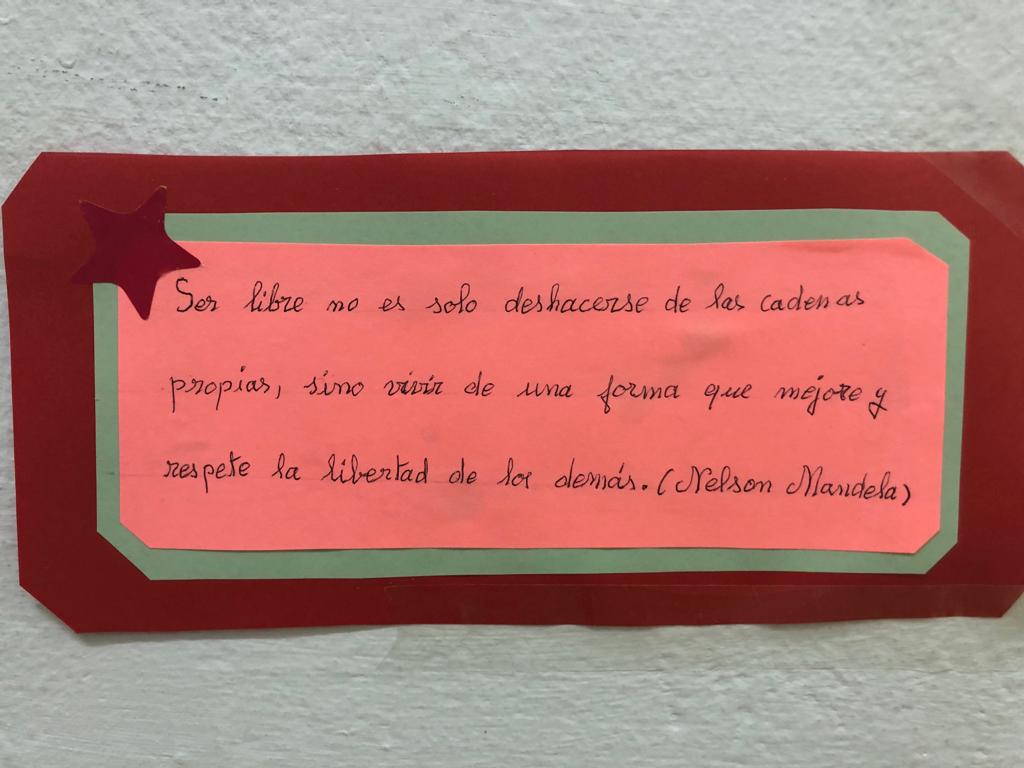 Ser libre no es solo deshacerse de las cadenas
propias, sino vivir de una forma que mejore y
respete la libertad de los demás. (Nelson Mandela)